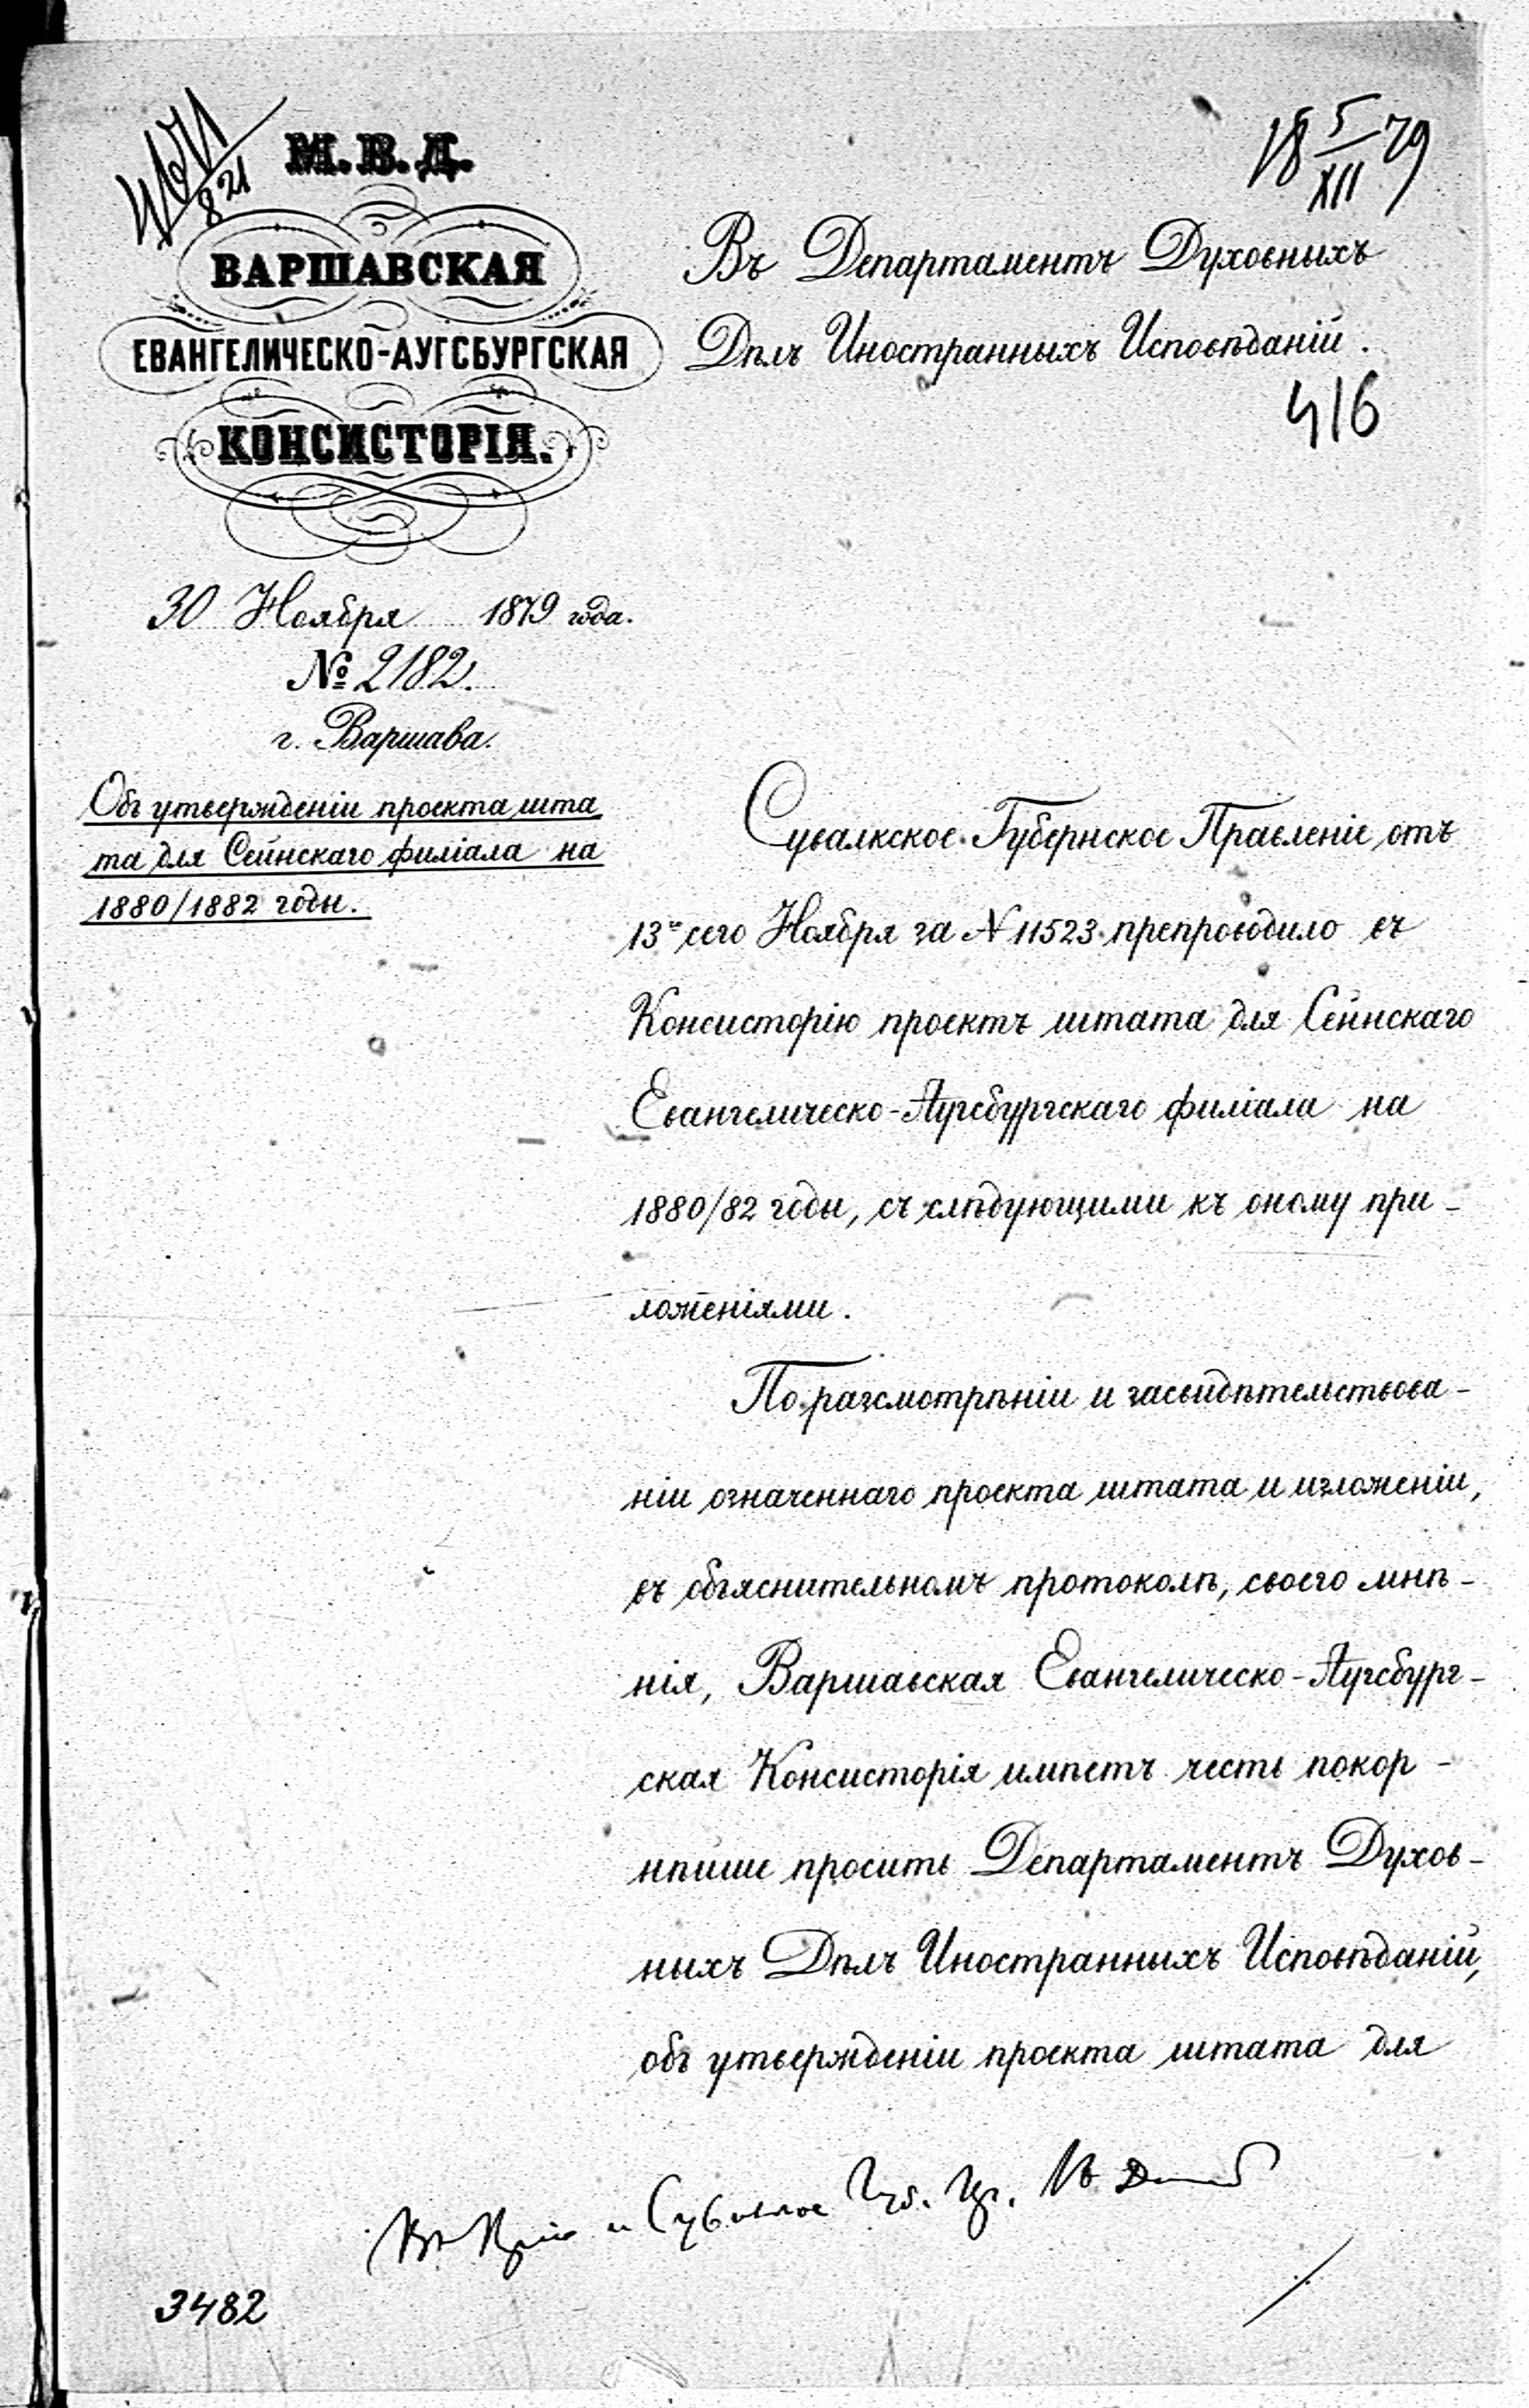 М. В. Д.
ВАРШАВСКАЯ
ЕВАНГЕЛИЧЕСКО-АУГСБУРГСКАЯ
КОНСИСТОРІЯ.
30 Ноября 1879 года.
№ 2182.
г. Варшава.
Объ утвержденіи проекта шта
та для Сейнскаго филіала на
1880/1882 годы.
18 5/XII 79
Въ Департаментъ Духовныхъ
Дѣлъ Иностранныхъ Исповѣданій.
416
Сувалкское Губернское Правленіе отъ
13го сего Ноября за № 11523 препроводило въ
Консисторію проектъ штата для Сейнскаго
Евангелическо-Аугсбургскаго филіала на
1880/82 годы, съ слѣдующими къ оному при-
ложеніями.
По разсмотрѣніи и засвидѣтельствова-
ніи означеннаго проекта штата и изложеніи,
въ объяснительномъ протоколѣ, своего мнѣ-
нія, Варшавская Евангелическо-Аугсбург-
ская Консисторія имѣетъ честь покор-
нѣйше просить Департаментъ Духов-
ныхъ Дѣлъ Иностранныхъ Исповѣданій,
объ утвержденіи проекта штата для
3482